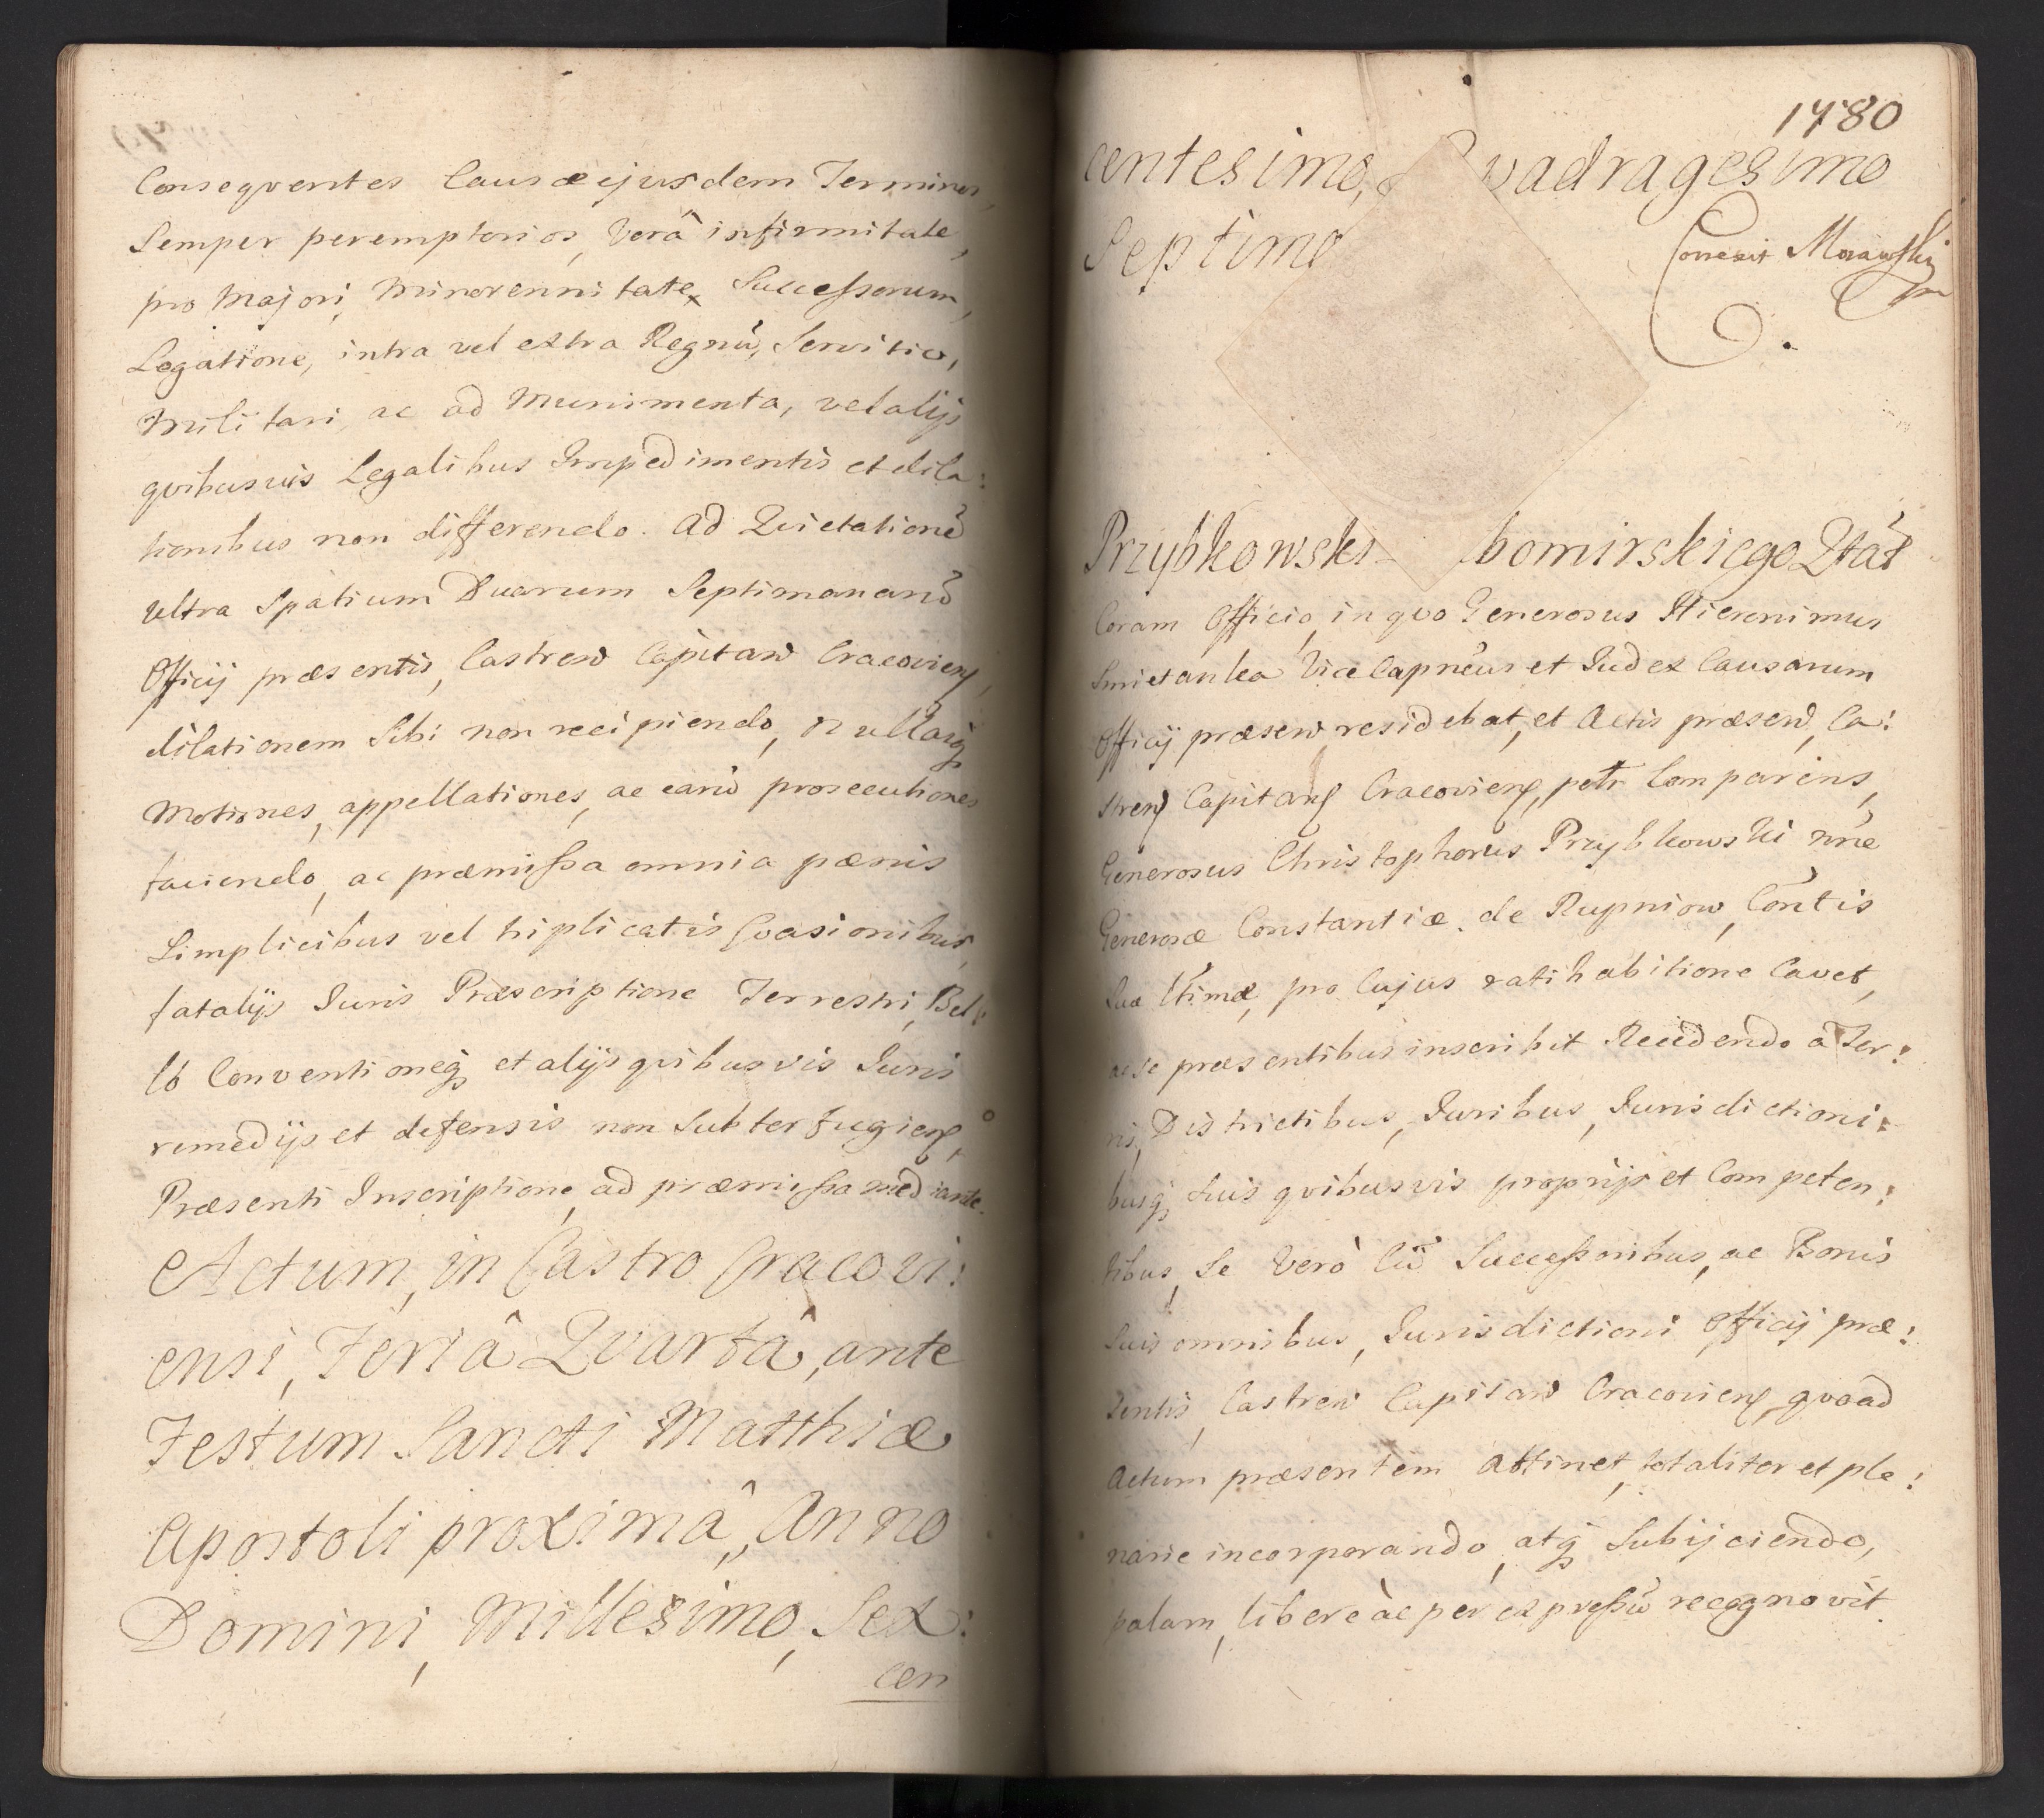 Conseqventes Causæ ejusdem Terminos,
Semper peremptorios, Verâ infirmitate,
pro Majori, Minorennitate, Successorum,
Legatione, intra vel extra Regnū, Servitio,
Militari, ac ad Munimenta, vel alijs
qvibusvis Legalibus Impedimentis et dila:
tionibus non differendo. Ad Qvietationē
ultra Spatium Duarum Septimanarū
Officij præsentis, Castren Capitan Cracovien,
dilationem Sibi non recipiendo, Nullasq
Motiones, appellationes, ac earū prosecutiones
faciendo, ac præmissa omnia pænis
Simplicibus vel triplicatis Evasionibus,
fatalijs Juris Præscriptione Terrestri, Bel:
lo Conventioneq et alijs qvibusvis Juris
remedijs et defensis non Subterfugien,
Præsenti Inscriptione, ad præmissa mediante.
Actum, in Castro Cracovi:
ensi, Feriâ Qvartâ, ante
Festum Sancti Matthiæ
Apostoli proximâ, Anno
Domini, Millesimo, Sex:
cen
1780
centesimo, Qvadragesimo
Septimo
Correxit Morawski
Przybkowski bomirskiego Qtat
Coram Officio, in qvo Generosus Hieronimus
Smietanka Vice Capneus et Judex Causarum
Officij præsen residebat, et Actis præsen, Ca:
stren Capitan Cracovien, petr Comparens,
Generosus Christophorus Przybkowski nne
Generosæ Constantiæ de Rupniow, Contis
Suæ Ltimæ, pro Cujus ratihabitione Cavet,
ac se præsentibus inscribit Recedendo a Ter:
ris, Districtibus, Juribus, Jurisdictioni:
busq, Suis qvibusvis proprijs et Competen:
tibus, Se Verò Cū Successoribus, ac Bonis
Suis omnibus, Jurisdictioni Officij præ:
sentis, Castren Capitan Cracovien, qvoad
Actum præsentem Attinet, totaliter et ple:
narie incorporando, atq Subijciendo,
palam, libere ac per expressū recognovit.